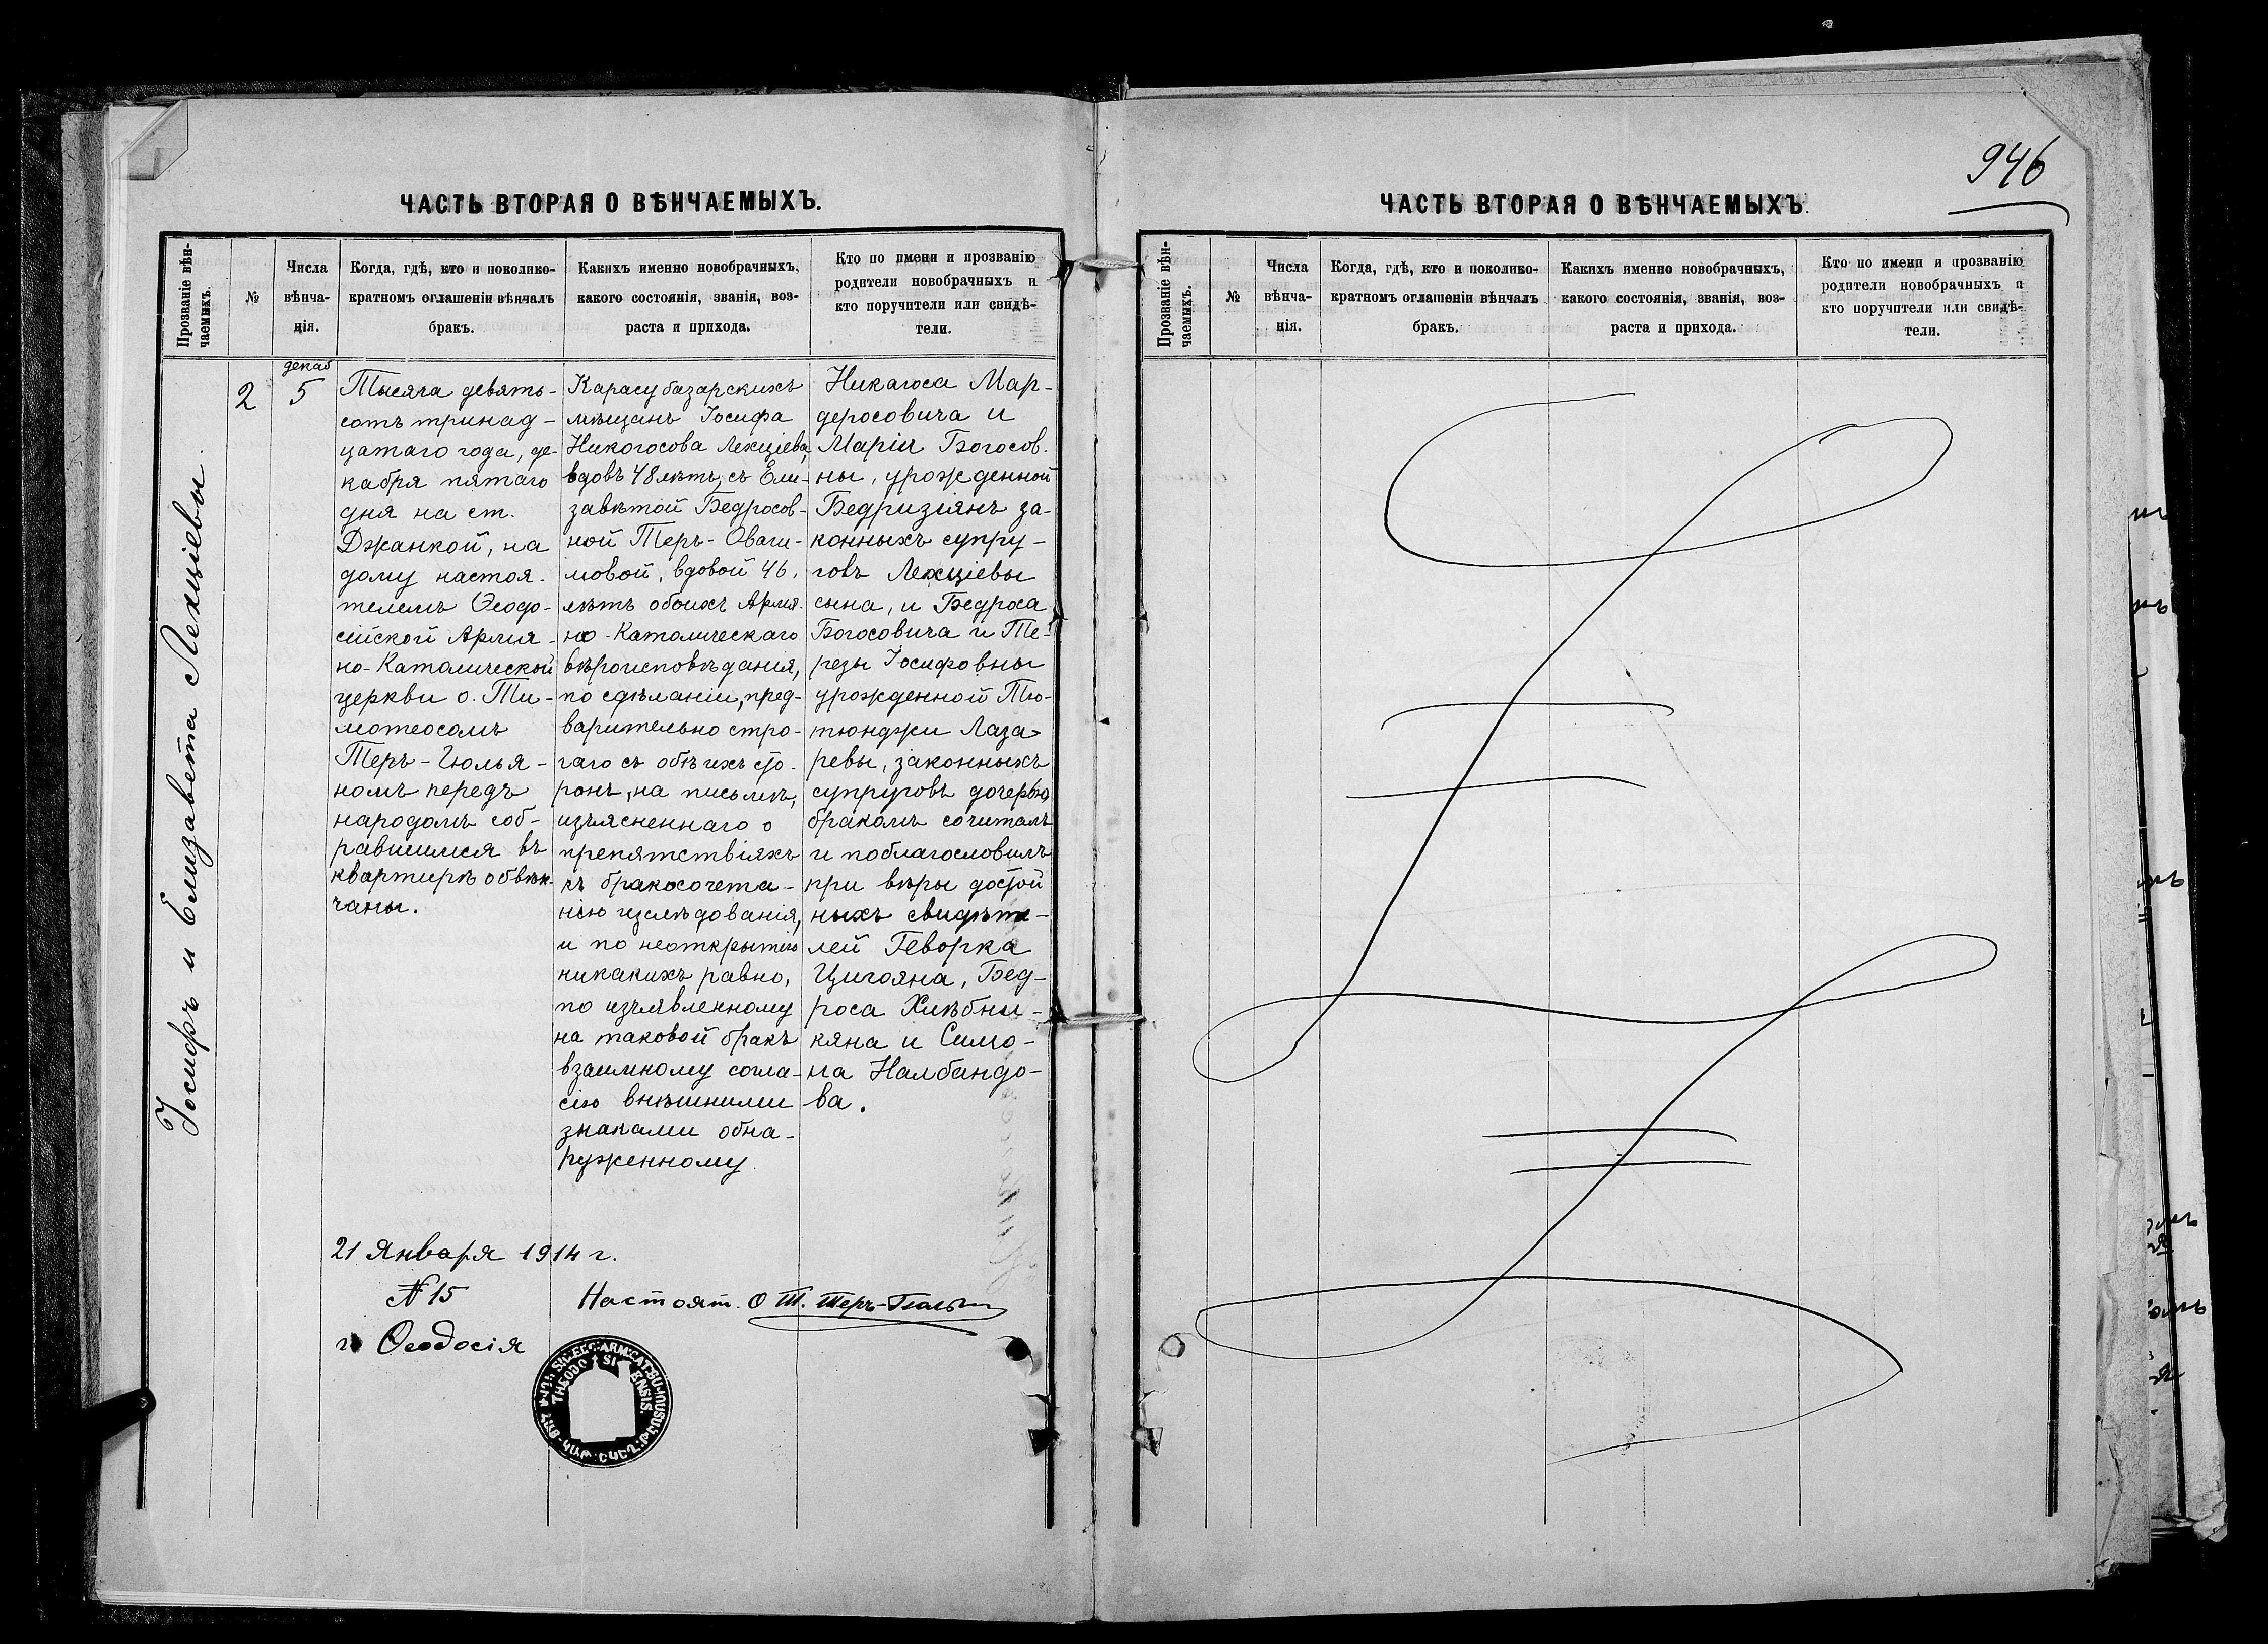 946
ЧАСТЬ ВТОРАЯ О ВѢНЧАЕМЫХЪ.
Прозваніе вѣн-
чаемыхъ.
№
Числа
вѣнча-
нія.
Когда, гдѣ, кто и поколико-
кратномъ оглашеніи вѣнчалъ
бракъ.
Какихъ именно новобрачныхъ,
какого состоянія, званія, воз-
раста и прихода.
Кто по имени и прозванію
родители новобрачныхъ и
кто поручители или свидѣ-
тели.
Іосифъ и Елизавета Лехціевы.
2
декаб
5
Тысяча девять-
сотъ тринад-
цатаго года, де-
кабря пятаго
дня на ст.
Джанкой, на
дому настоя-
телемъ Ѳеодо-
сійской Армя-
но-Католической
церкви о. Ти-
мотеосомъ
Теръ-Гюлья-
номъ передъ
народомъ соб-
равшимся въ
квартирѣ обвѣн-
чаны.
Карасубазарскихъ
мѣщанъ Іосифа
Никогосова Лехціева,
вдовъ 48 лѣтъ, съ Ели-
заветой Бедросов-
ной Теръ-Оваги-
мовой, вдовой 46,
лѣтъ обоихъ Армя-
но-Католическаго
вѣроисповѣданія,
по сдѣланіи, пред-
варительно стро-
гаго съ обѣихъ сто-
ронъ, на письмѣ,
изъясненнаго о
препятствіяхъ
къ бракосочета-
нію изслѣдованія,
и по неоткрытію
никакихъ равно,
по изъявленному
на таковой бракъ
взаимному согла-
сію внѣшними
знаками обна-
руженному.
Никагоса Мар-
деросовича и
Маріи Богосов-
ны, урожденной
Бедризіянъ за-
конныхъ супру-
говъ Лехціевы
сына, и Бедроса
Богосовича и Те-
резы Іосифовны
урожденной Тю-
тюнджи Лаза-
ревы, законныхъ
супруговъ дочерью
бракомъ сочиталъ
и поблагословилъ
при вѣры достой
ныхъ свидѣте-
лей Геворка
Цигояна, Бед-
роса Хлѣбни-
кяна и Симо-
на Налбандо-
ва.
21 Января 1914 г.
№ 15
г. Ѳеодосія
Настоят. О Т. Теръ-Гюльян
THEODOSIENSIS.
ЧАСТЬ ВТОРАЯ О ВѢНЧАЕМЫХЪ.
Прозваніе вѣн-
чаемыхъ.
№
Числа
вѣнча-
нія.
Когда, гдѣ, кто и поколико-
кратномъ оглашеніи вѣнчалъ
бракъ.
Какихъ именно новобрачныхъ,
какого состоянія, званія, воз-
раста и прихода.
Кто по имени и прозванію
родители новобрачныхъ и
кто поручители или свидѣ-
тели.